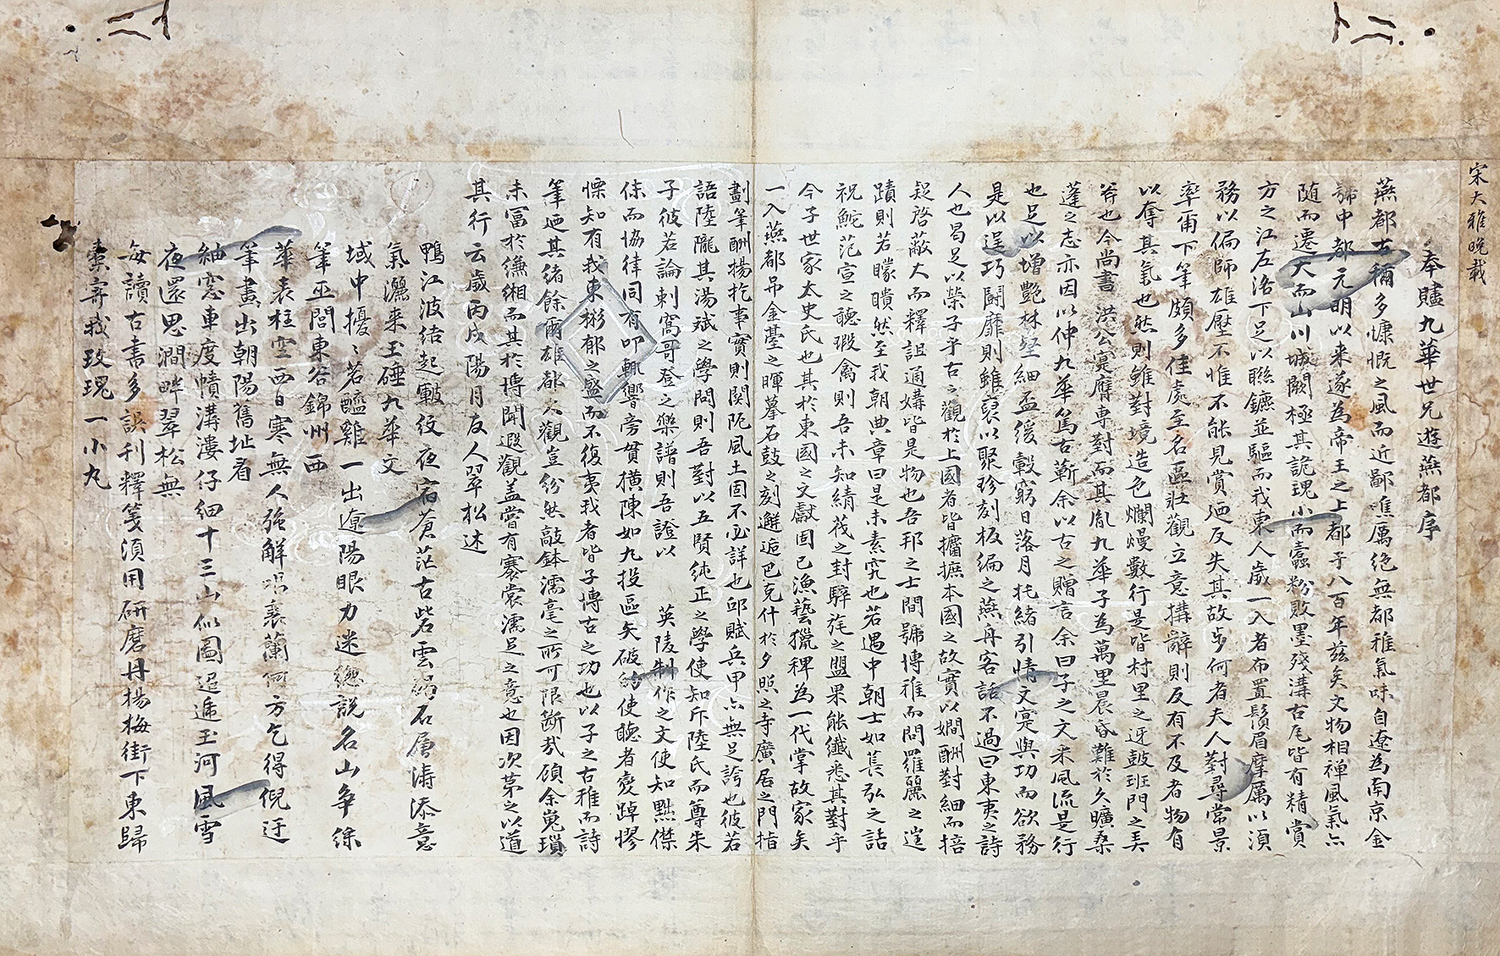 宋大雅晚載
奉贐九華世兄遊燕都序
燕都古稱多慷慨之風而近鄙唯厲絶無都稚氣味自遼為南京金
號中都元明以来遂為帝王之上都于八百年玆矣文物相禅風氣亦
随而遷大而山川城闕極其詭瑰小而蠹粉敗墨殘溝古瓦皆有精賞
方之江左洛下足以聯鑣並驅而我東人歲一入者布置鬚眉摩厲以湏
務以偏師雄壓不惟不能見賞廼反失其故步何者夫人對尋常景
率甭下筆頗多佳處至名區壯觀立意搆辭則反有不及者物有
以奪其氣也然則雖對境造色爛熳數行是皆村里之迓鼓班門之弄
斧也今尚書 洪公寔膺專對而其胤九華子為萬里晨昏難於久曠桑
蓬之志亦因以伸九華篤古蘄余以古之贈言余曰子之文采風流是行
也足以增艶林壑細盃緩轂窮日落月抚緒引情文寔與功而欲務
是以逞巧鬪靡則雖裒以聚珍刻板編之燕舟客話不過曰東夷之詩
人也曷足以榮子乎古之觀於上國者皆擴摭本國之故實以嫺酬對細而掊
疑啓蔽大而釋詛通媾皆是物也吾邦之士間號博雅而問羅麗之逹
蹟則若矇瞶然至我朝典章曰是未素究也若遇中朝士如萇弘之詰
祝鮀范宣之聽瑕禽則吾未知綪茷之封騂旄之盟果能纖悉其對乎
今子世家太史氏也其於東國之文獻固已漁藝獵稗為一代掌故家矣
一入燕都吊金臺之暉摹石鼓之刻邂逅巴克什於夕照之寺廣居之門指
劃筆酬揚扢事實則関阨風土固不必詳也邱賦兵甲亦無足誇也彼若
語陸隴其湯斌之學問則吾對以五賢純正之學使知斥陸氏而尊朱
子彼若論刺窩哥登之樂譜則吾證以 英陵制作之文使知黙傑
㑅而協律同有叩輒響旁貫横陳如九投區矢破的使聽者變踔惸
慄知有我東彬郁之盛而不復夷我者皆子博古之功也以子之古雅而詩
筆廼其緒餘爾雄都大觀豈份然敲鉢濡毫之所可限斷哉頋余嵬瑣
未富於縑緗而其於搏聞遐觀盖嘗有褰裳濡足之意也因次苐之以道
其行云歲丙戌陽月友人翠松述
鴨江波結起皸役夜宿蒼茫古砦雲歸石屠濤添意
氣灑来玉碰九華文
域中擾〻若醯雞一出遼陽眼力迷緫説名山争傑
筆巫閭東谷錦州西
華表柱空西日寒無人強解唱裴蘭何方乞得倪迂
筆畫出朝陽舊址看
紬窓車度幘溝漊仔细十三山似圖迢遞玉河風雪
夜還思澗畔翠松無
每讀古書多誤刋釋箋湏用研磨丹楊梅街下東歸
槖寄我玫瑰一小丸